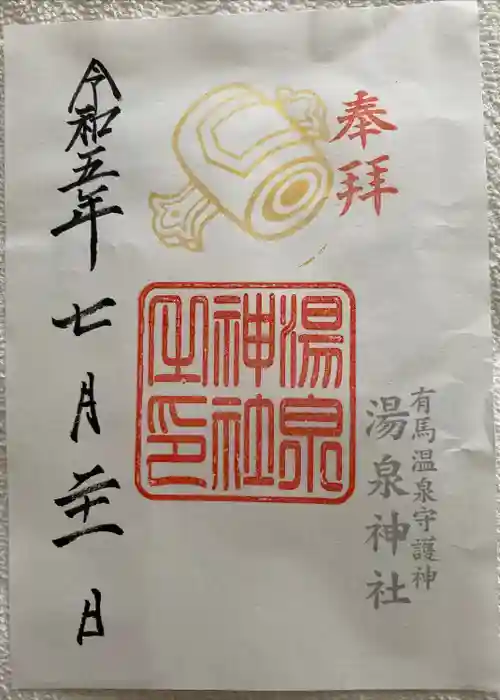 奉拝
有馬温泉守護神
湯泉神社
湯泉
神社
之印
令和五年七月二十一日